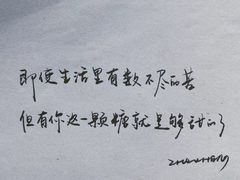 即使生活里有数不尽的苦
但有你这一颗糖就足够甜的了